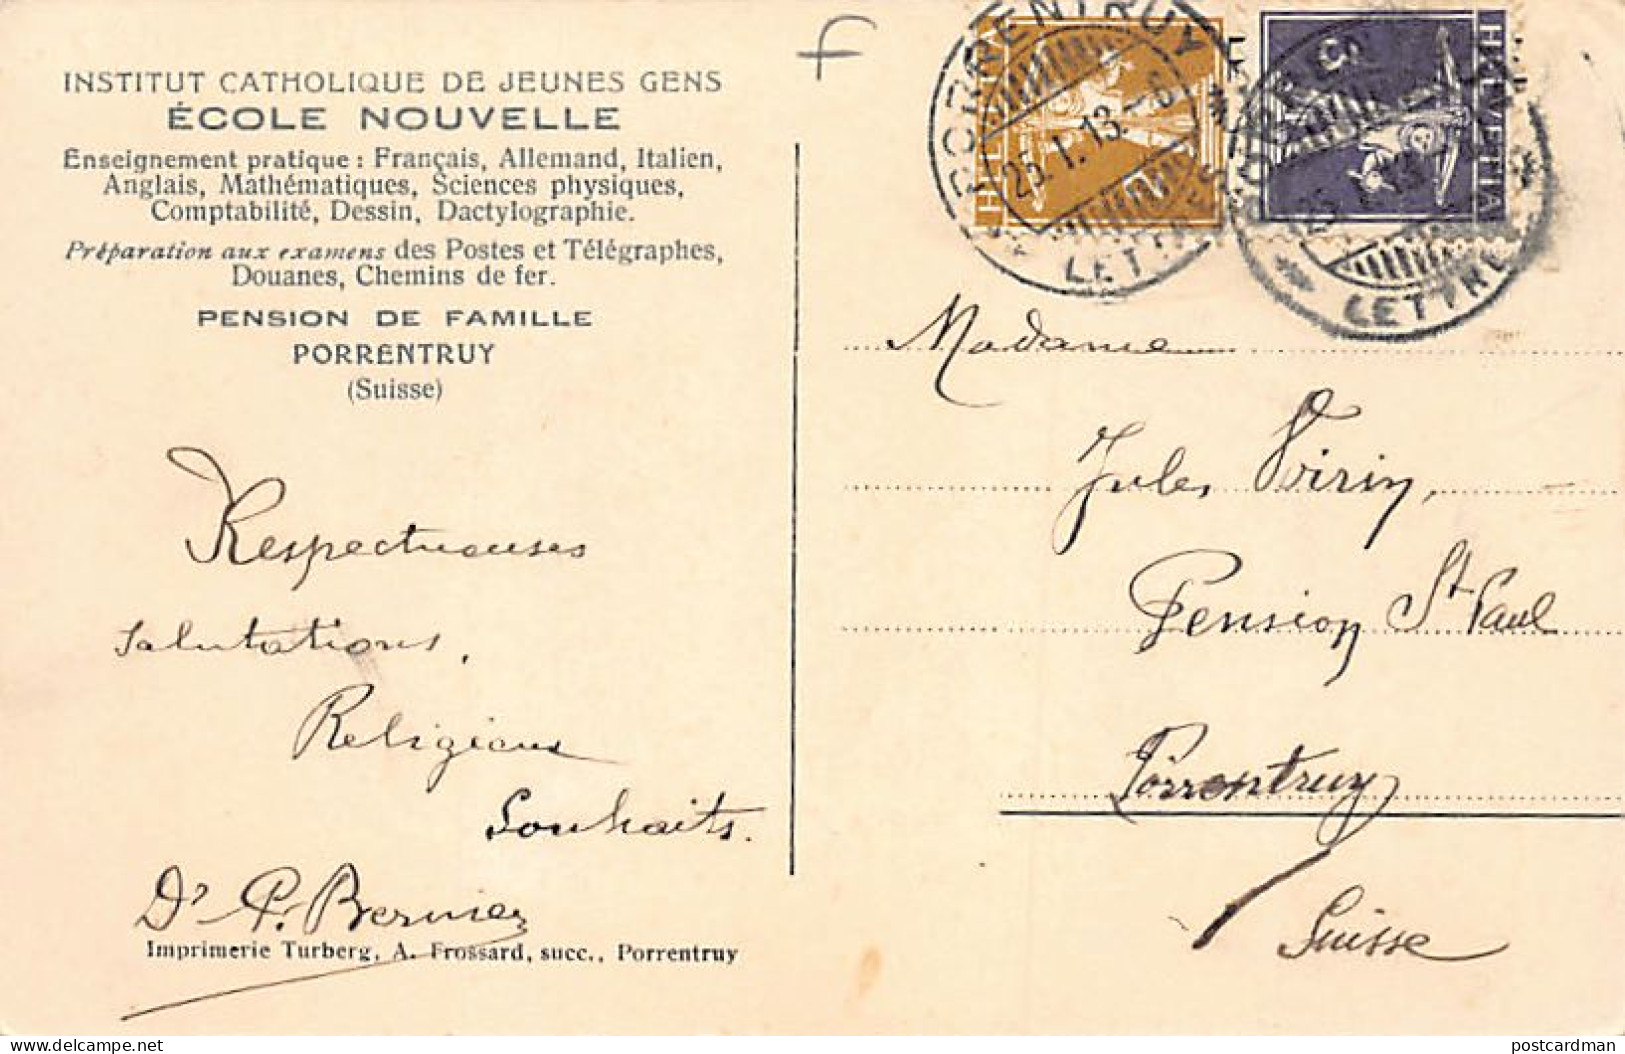 INSTITUT CATHOLIQUE DE JEUNES GENS
ÉCOLE NOUVELLE
Enseignement pratique : Français, Allemand, Italien,
Anglais, Mathématiques, Sciences physiques,
Comptabilité, Dessin, Dactylographie.
Préparation aux examens des Postes et Télégraphes,
Douanes, Chemins de fer.
PENSION DE FAMILLE
PORRENTRUY
(Suisse)
Respectueuses
salutations,
Religieux
Souhaits.
Dr P. Bernier
Imprimerie Turberg, A. Frossard, succ., Porrentruy
f
PORRENTRUY
25.I.13.-6
LETTRES
HELVETIA
LETTRES
Madame
Jules Voirin,
Pension St Paul
Porrentruy
Suisse
postcardman.net
postcardman